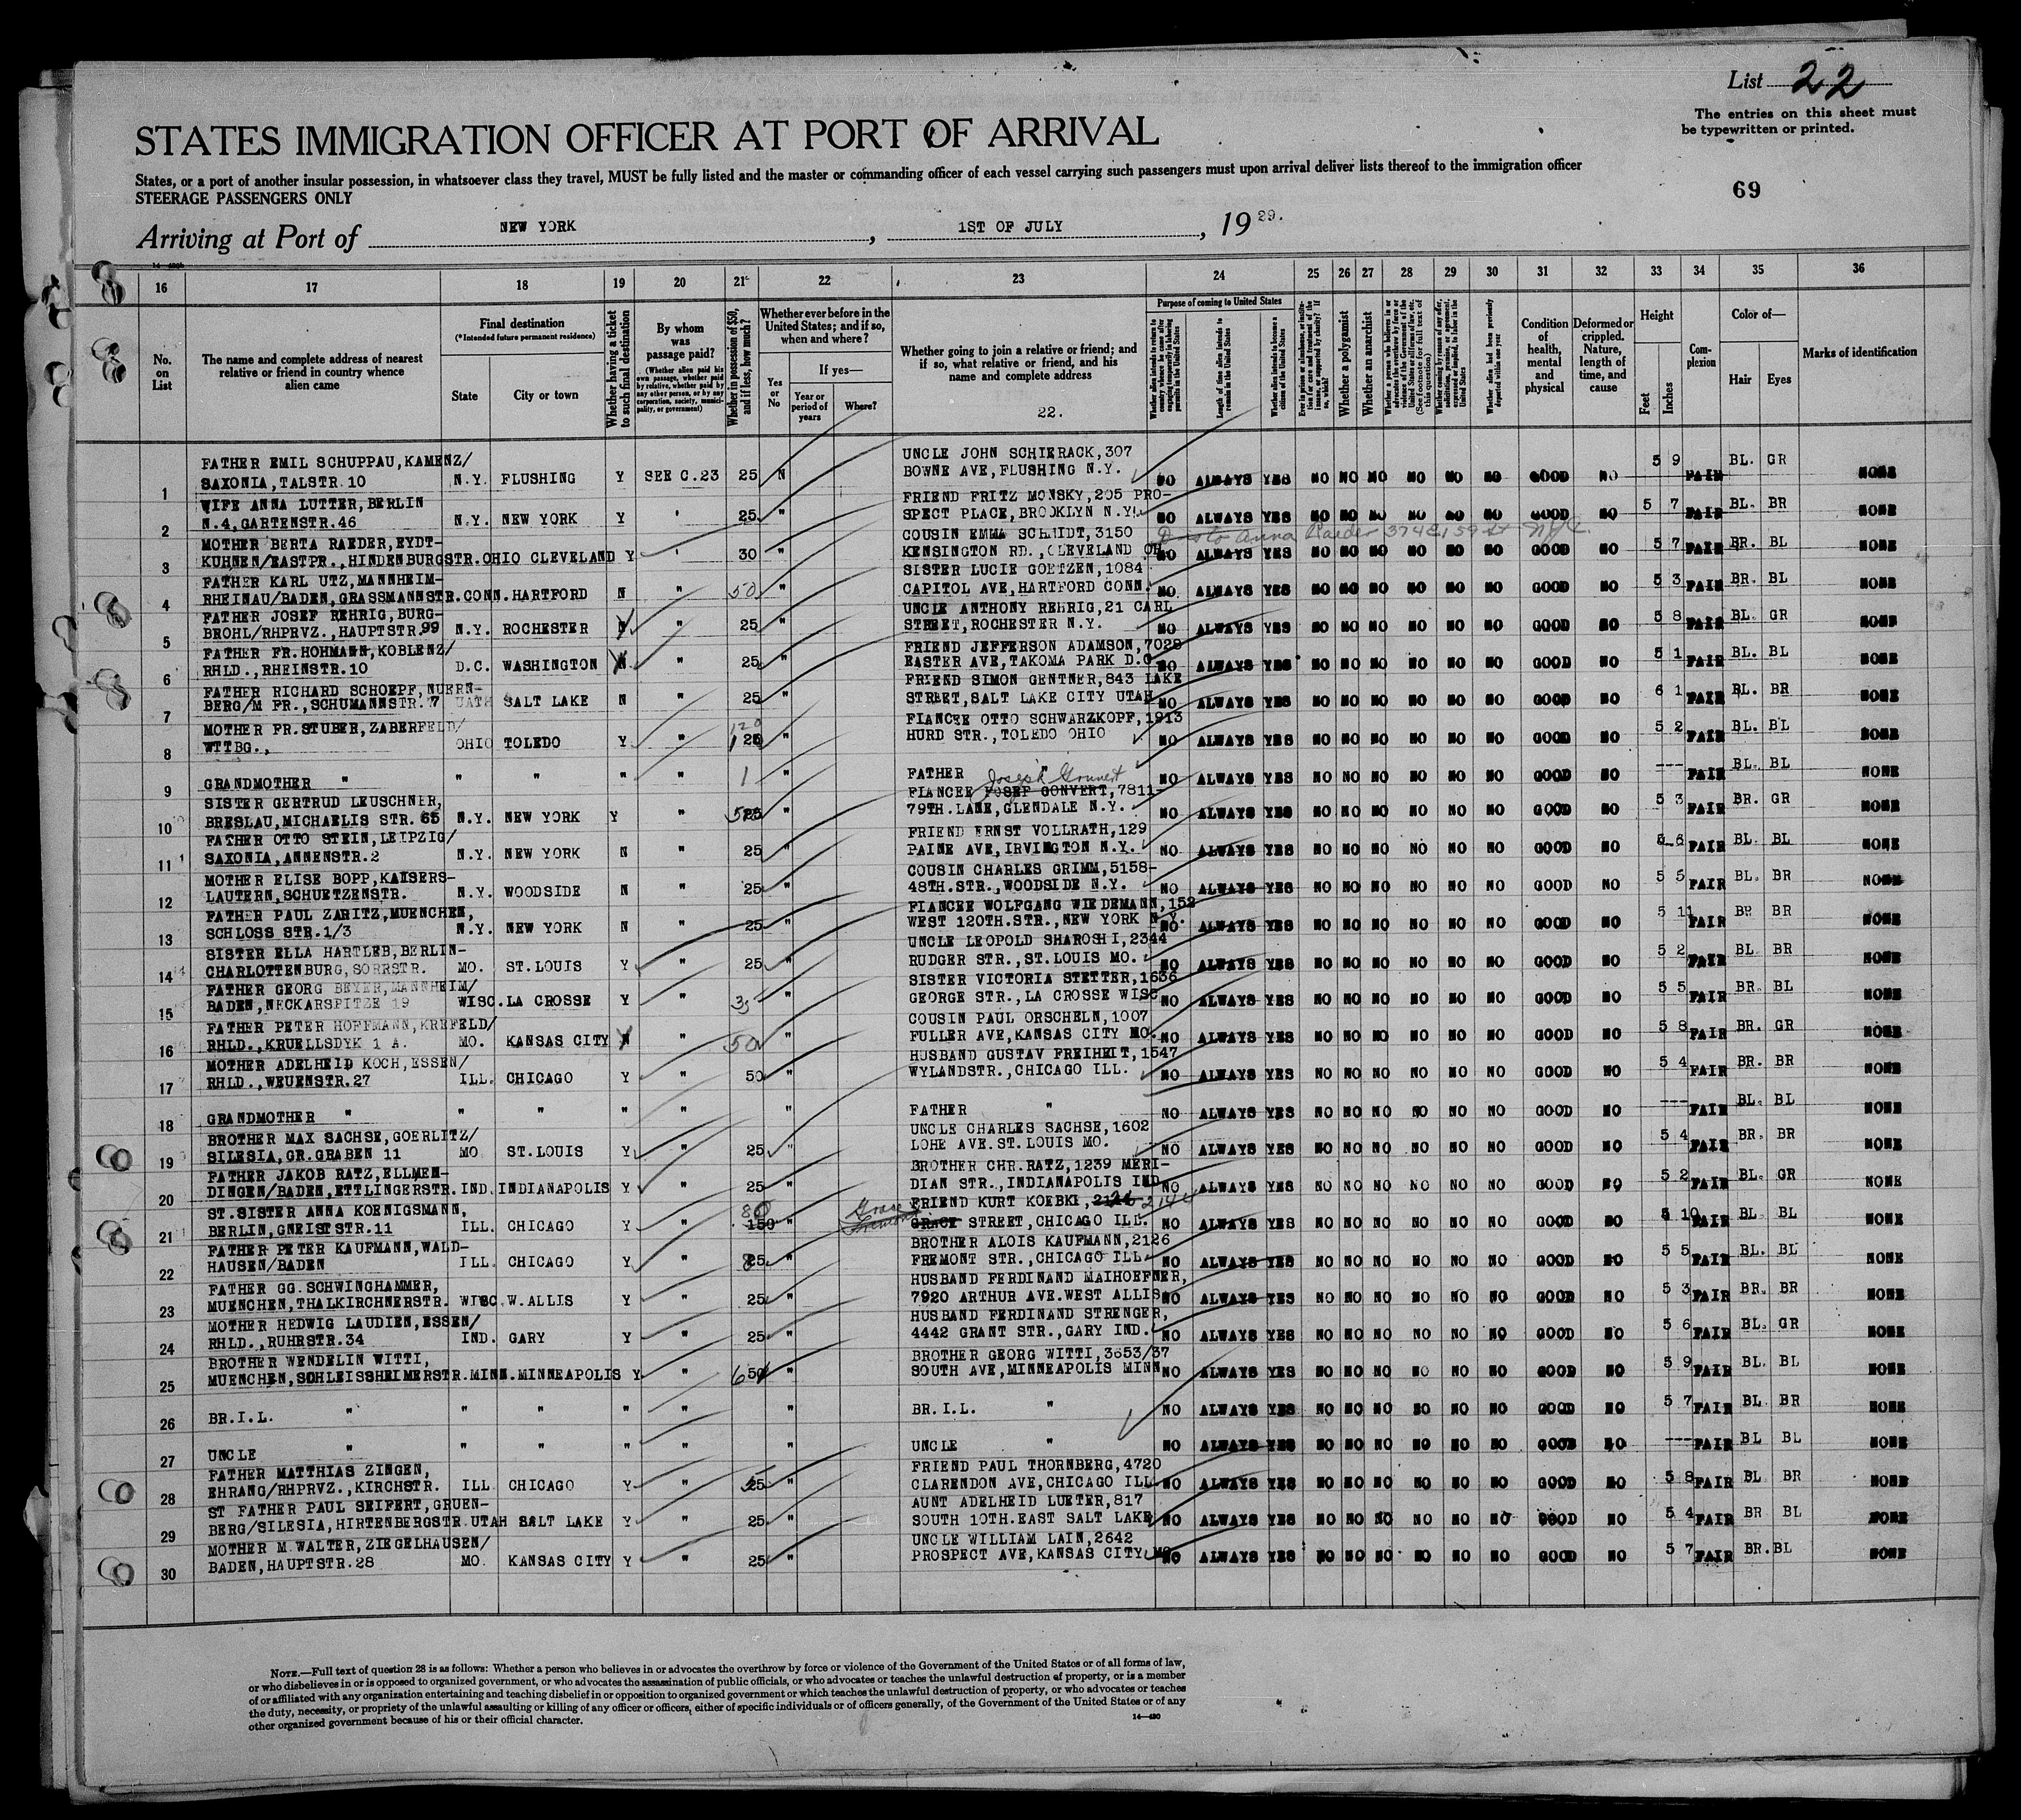 List 22
The entries on this sheet must
be typewritten or printed.
STATES IMMIGRATION OFFICER AT PORT OF ARRIVAL
States, or a port of another insular possession, in whatsoever class they travel, MUST be fully listed and the master or commanding officer of each vessel carrying such passengers must upon arrival deliver lists thereof to the immigration officer
STEERAGE PASSENGERS ONLY
69
Arriving at Port of NEW YORK, 1ST OF JULY, 1929.
16 17 18 19 20 21 22 23 24 25 26 27 28 29 30 31 32 33 34 35 36
No. on List
The name and complete address of nearest relative or friend in country whence alien came
Final destination
(*Intended future permanent residence)
State
City or town
Whether having a ticket to such final destination
By whom was passage paid?
(Whether alien paid his own passage, whether paid by relative, whether paid by any other person, or by any corporation, society, municipality, or government)
Whether in possession of $50, and if less, how much?
Whether ever before in the United States; and if so, when and where?
Yes or No
If yes—
Year or period of years
Where?
Whether going to join a relative or friend; and if so, what relative or friend, and his name and complete address
22.
Purpose of coming to United States
Length of time alien intends to remain in the United States
Whether alien intends to become a citizen of the United States
Whether a polygamist
Whether an anarchist
Whether alien had been previously deported within one year
Condition of health, mental and physical
Deformed or crippled. Nature, length of time, and cause
Height
Feet
Inches
Complexion
Color of—
Hair
Eyes
Marks of identification
1 FATHER EMIL SCHUPPAU, KAMENZ/ SAXONIA, TALSTR.10 N.Y. FLUSHING Y SEE C.23 25 N UNCLE JOHN SCHIERACK, 307 BOWNE AVE, FLUSHING N.Y. NO ALWAYS YES NO NO NO NO NO NO GOOD NO 5 9 FAIR BL. GR NONE
2 WIFE ANNA LUTTER, BERLIN N.4, GARTENSTR.46 N.Y. NEW YORK Y " 25 " FRIEND FRITZ MONSKY, 205 PROSPECT PLACE, BROOKLYN N.Y. NO ALWAYS YES NO NO NO NO NO NO GOOD NO 5 7 FAIR BL. BR NONE
3 MOTHER BERTA RAEDER, EYDTKUHNEN/EASTPR., HINDENBURGSTR. OHIO CLEVELAND Y " 30 " COUSIN EMMA SCHMIDT, 3150 KENSINGTON RD., CLEVELAND OH. NO ALWAYS YES NO NO NO NO NO NO GOOD NO 5 7 FAIR BR. BL NONE
Anna Raeder 374 E 159 St NYC.
4 FATHER KARL UTZ, MANNHEIM-RHEINAU/BADEN, GRASSMANNSTR. CONN. HARTFORD N " 50 " SISTER LUCIE GOETZEN, 1084 CAPITOL AVE, HARTFORD CONN. NO ALWAYS YES NO NO NO NO NO NO GOOD NO 5 3 FAIR BR. BL NONE
5 FATHER JOSEF REHRIG, BURGBROHL/RHPRVZ., HAUPTSTR.99 N.Y. ROCHESTER Y " 25 " UNCLE ANTHONY REHRIG, 21 CARL STREET, ROCHESTER N.Y. NO ALWAYS YES NO NO NO NO NO NO GOOD NO 5 8 FAIR BL. GR NONE
6 FATHER FR.HOHMANN, KOBLENZ/ RHLD., RHEINSTR.10 D.C. WASHINGTON Y " 25 " FRIEND JEFFERSON ADAMSON, 7028 EASTER AVE, TAKOMA PARK D.C. NO ALWAYS YES NO NO NO NO NO NO GOOD NO 5 1 FAIR BL. BL NONE
7 FATHER RICHARD SCHOEPF, NUERNBERG/M FR., SCHUMANNSTR.7 UATH SALT LAKE N " 25 " FRIEND SIMON GENTNER, 843 LAKE STREET, SALT LAKE CITY UTAH NO ALWAYS YES NO NO NO NO NO NO GOOD NO 6 1 FAIR BL. BR NONE
8 MOTHER FR.STUBER, ZABERFELD/ WTTBG., OHIO TOLEDO Y " 120 " FIANCEE OTTO SCHWARZKOPF, 1913 HURD STR., TOLEDO OHIO NO ALWAYS YES NO NO NO NO NO NO GOOD NO 5 2 FAIR BL. BL NONE
9 GRANDMOTHER " " " " " 1 " FATHER " NO ALWAYS YES NO NO NO NO NO NO GOOD NO --- FAIR BL. BL NONE
10 SISTER GERTRUD LEUSCHNER, BRESLAU, MICHAELIS STR. 65 N.Y. NEW YORK Y " " FIANCEE JOSEF GONVERT, 7811- 79TH. LANE, GLENDALE N.Y. NO ALWAYS YES NO NO NO NO NO NO GOOD NO 5 3 FAIR BR. GR NONE
Joseph Gonnert
11 FATHER OTTO STEIN, LEIPZIG/ SAXONIA, ANNENSTR.2 N.Y. NEW YORK N " 25 " FRIEND ERNST VOLLRATH, 129 PAINE AVE, IRVINGTON N.Y. NO ALWAYS YES NO NO NO NO NO NO GOOD NO 5 6 FAIR BL. BL NONE
12 MOTHER ELISE BOPP, KAISERSLAUTERN, SCHUETZENSTR. N.Y. WOODSIDE N " 25 " COUSIN CHARLES GRIMM, 5158- 48TH.STR., WOODSIDE N.Y. NO ALWAYS YES NO NO NO NO NO NO GOOD NO 5 5 FAIR BL. BR NONE
13 FATHER PAUL ZARITZ, MUENCHEN, SCHLOSS STR.1/3 N.Y. NEW YORK N " 25 " FIANCEE WOLFGANG WIEDEMANN, 152 WEST 120TH.STR., NEW YORK N.Y. NO ALWAYS YES NO NO NO NO NO NO GOOD NO 5 11 FAIR BR BR NONE
14 SISTER ELLA HARTLEB, BERLIN-CHARLOTTENBURG, SORRSTR. MO. ST.LOUIS Y " 25 " UNCLE LEOPOLD SHAROSHI, 2344 RUDGER STR., ST.LOUIS MO. NO ALWAYS YES NO NO NO NO NO NO GOOD NO 5 2 FAIR BL BR NONE
15 FATHER GEORG BEYER, MANNHEIM/ BADEN, NECKARSPITZE 19 WISC. LA CROSSE Y " 35 " SISTER VICTORIA STETTER, 1636 GEORGE STR., LA CROSSE WISC NO ALWAYS YES NO NO NO NO NO NO GOOD NO 5 5 FAIR BR. BL NONE
16 FATHER PETER HOFFMANN, KREFELD/ RHLD., KRUELLSDYK 1 A. MO. KANSAS CITY Y " 50 " COUSIN PAUL ORSCHELN, 1007 FULLER AVE, KANSAS CITY MO. NO ALWAYS YES NO NO NO NO NO NO GOOD NO 5 8 FAIR BR. GR NONE
17 MOTHER ADELHEID KOCH, ESSEN/ RHLD., WEUENSTR.27 ILL. CHICAGO Y " 50 " HUSBAND GUSTAV FREIHEIT, 1547 WYLANDSTR., CHICAGO ILL. NO ALWAYS YES NO NO NO NO NO NO GOOD NO 5 4 FAIR BR. BR NONE
18 GRANDMOTHER " " " " " " FATHER " NO ALWAYS YES NO NO NO NO NO NO GOOD NO --- FAIR BL. BL NONE
19 BROTHER MAX SACHSE, GOERLITZ/ SILESIA, GR.GRABEN 11 MO ST.LOUIS Y " 25 " UNCLE CHARLES SACHSE, 1602 LOHE AVE.ST.LOUIS MO. NO ALWAYS YES NO NO NO NO NO NO GOOD NO 5 4 FAIR BR. BR NONE
20 FATHER JAKOB RATZ, ELLMENDINGEN/BADEN, ETTLINGERSTR. IND. INDIANAPOLIS Y " 25 " BROTHER CHR.RATZ, 1239 MERIDIAN STR., INDIANAPOLIS IND. NO ALWAYS YES NO NO NO NO NO NO GOOD NO 5 2 FAIR BL. GR NONE
21 ST.SISTER ANNA KOENIGSMANN, BERLIN, GNEISTSTR.11 ILL. CHICAGO Y " 80 150 " Grace FRIEND KURT KOEBKE, 2144 GRACE STREET, CHICAGO ILL. NO ALWAYS YES NO NO NO NO NO NO GOOD NO 5 10 FAIR BL. BL NONE
22 FATHER PETER KAUFMANN, WALDHAUSEN/BADEN ILL. CHICAGO Y " 25 " BROTHER ALOIS KAUFMANN, 2126 FREMONT STR., CHICAGO ILL. NO ALWAYS YES NO NO NO NO NO NO GOOD NO 5 5 FAIR BL. BL NONE
23 FATHER GG.SCHWINGHAMMER, MUENCHEN, THALKIRCHNERSTR. WISC. W.ALLIS Y " 25 " HUSBAND FERDINAND MAIHOEFNER, 7920 ARTHUR AVE.WEST ALLIS NO ALWAYS YES NO NO NO NO NO NO GOOD NO 5 3 FAIR BR. BR NONE
24 MOTHER HEDWIG LAUDIEN, ESSEN/ RHLD., RUHRSTR.34 IND. GARY Y " 25 " HUSBAND FERDINAND STRENGER, 4442 GRANT STR., GARY IND. NO ALWAYS YES NO NO NO NO NO NO GOOD NO 5 6 FAIR BL. GR NONE
25 BROTHER WENDELIN WITTI, MUENCHEN, SCHLEISSHEIMERSTR. MINN. MINNEAPOLIS Y " 650 " BROTHER GEORG WITTI, 3653/37 SOUTH AVE, MINNEAPOLIS MINN NO ALWAYS YES NO NO NO NO NO NO GOOD NO 5 9 FAIR BL. BL NONE
26 BR.I.L. " " " " " " BR.I.L. " NO ALWAYS YES NO NO NO NO NO NO GOOD NO 5 7 FAIR BL. BR NONE
27 UNCLE " " " " " " UNCLE " NO ALWAYS YES NO NO NO NO NO NO GOOD NO --- FAIR BL BL NONE
28 FATHER MATTHIAS ZINGEN, EHRANG/RHPRVZ., KIRCHSTR. ILL CHICAGO Y " 25 " FRIEND PAUL THORNBERG, 4720 CLARENDON AVE, CHICAGO ILL NO ALWAYS YES NO NO NO NO NO NO GOOD NO 5 8 FAIR BL BR NONE
29 ST FATHER PAUL SEIFERT, GRUENBERG/SILESIA, HIRTENBERGSTR. UTAH SALT LAKE Y " 25 " AUNT ADELHEID LUETER, 817 SOUTH 10TH.EAST SALT LAKE NO ALWAYS YES NO NO NO NO NO NO GOOD NO 5 4 FAIR BR BL NONE
30 MOTHER M.WALTER, ZIEGELHAUSEN/ BADEN, HAUPTSTR.28 MO. KANSAS CITY Y " 25 " UNCLE WILLIAM LAIN, 2642 PROSPECT AVE, KANSAS CITY MO NO ALWAYS YES NO NO NO NO NO NO GOOD NO 5 7 FAIR BR. BL NONE
NOTE.—Full text of question 28 is as follows: Whether a person who believes in or advocates the overthrow by force or violence of the Government of the United States or of all forms of law,
or who disbelieves in or is opposed to organized government, or who advocates the assassination of public officials, or who advocates or teaches the unlawful destruction of property, or is a member
of or affiliated with any organization entertaining and teaching disbelief in or opposition to organized government or which teaches the unlawful destruction of property, or who advocates or teaches
the duty, necessity, or propriety of the unlawful assaulting or killing of any officer or officers, either of specific individuals or of officers generally, of the Government of the United States or of any
other organized government because of his or their official character.
14—430